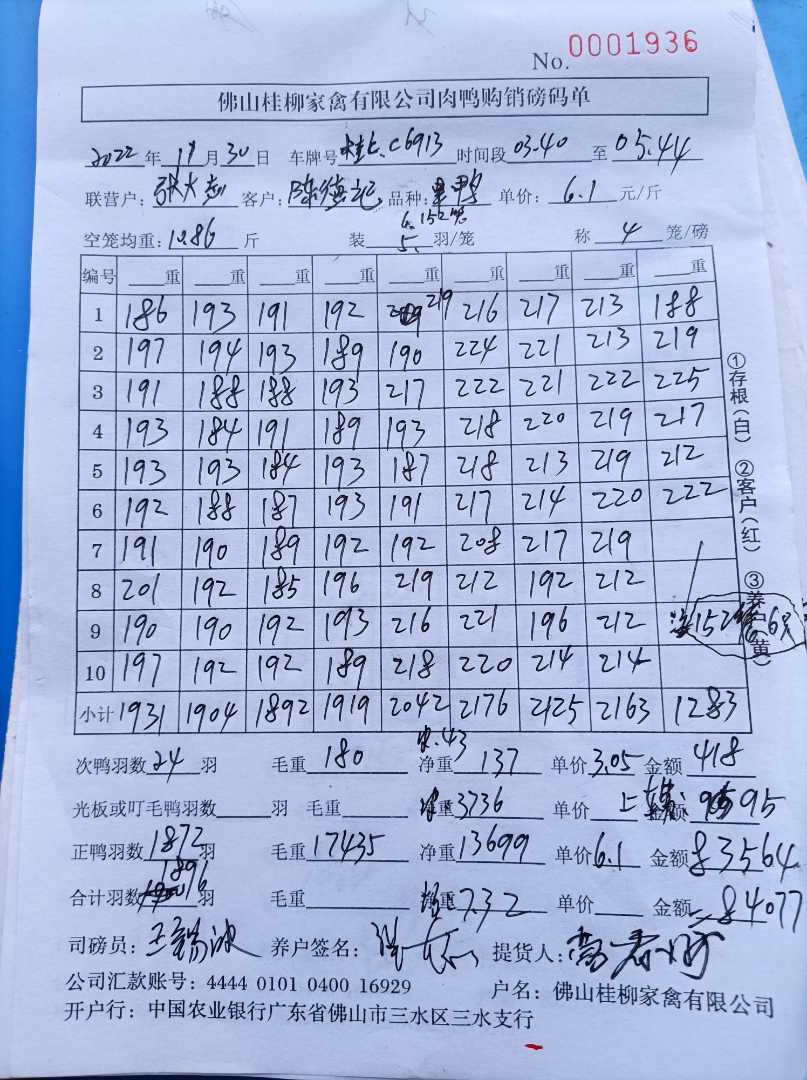 No. 0001936
佛山桂柳家禽有限公司肉鸭购销磅码单
2022 年 11 月 30 日 车牌号 桂K.C6913 时间段 03.40 至 05.44
联营户: 客户: 陈德记 品种: 单价: 6.1 元/斤
6. 152笼
空笼均重: 10.86 斤 装 5. 羽/笼 称 4 笼/磅
编号 重 重 重 重 重 重 重 重 重
1 186 193 191 192 219 216 217 213 188
2 197 194 193 189 190 224 221 213 219
3 191 188 188 193 217 222 221 222 225
4 193 184 191 189 193 218 220 219 217
5 193 193 184 193 187 218 213 219 212
6 192 188 187 193 191 217 214 220 222
7 191 190 189 192 192 208 217 219
8 201 192 185 196 219 212 192 212
9 190 190 192 193 216 221 196 212 152 6只
10 197 192 192 189 218 220 214 214
小计 1931 1904 1892 1919 2042 2176 2125 2163 1283
①存根(白) ②客户(红) ③养户(黄)
次鸭羽数 24 羽 毛重 180 .43 净重 137 单价 3.05 金额 418
光板或叮毛鸭羽数 羽 毛重 净重 3736 单价 上 金额 95
正鸭羽数 1872 羽 毛重 17435 净重 13699 单价 6.1 金额 83564
合计羽数 1896 羽 毛重 净重 7.32 单价 金额 84077
司磅员: 王 波 养户签名: 提货人:
公司汇款账号: 4444 0101 0400 16929 户名: 佛山桂柳家禽有限公司
开户行: 中国农业银行广东省佛山市三水区三水支行